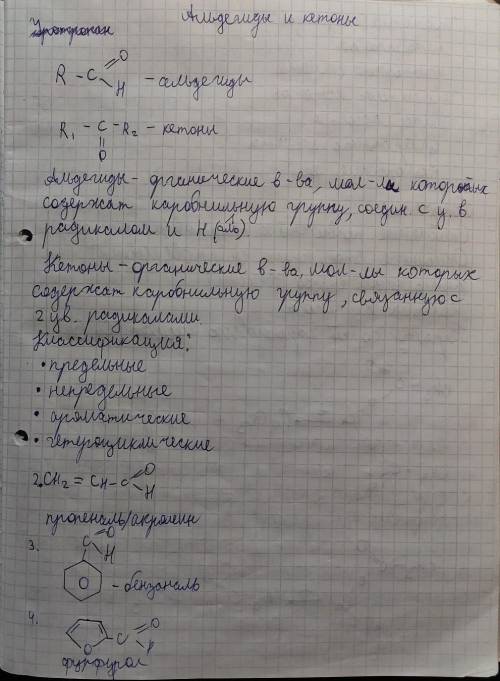 Альдегиды и кетоны
Уротропан
R - C = O
H - альдегиды
R₁ - C - R₂ - кетоны
O
Альдегиды - органические в-ва, мол-лы которых
содержат каробнильную группу, соедин. с у.в.
радикалом и H
Кетоны - органические в-ва, мол-лы которых
содержат каробнильную группу, связанную с
2 у.в. радикалами.
Классификация:
• предельные
• непредельные
• ароматические
• гетероциклические
2. CH₂ = CH - C = O
H
пропеналь/акролеин
3. C = O
H
O - бензаналь
4. O C = O
фурфурол